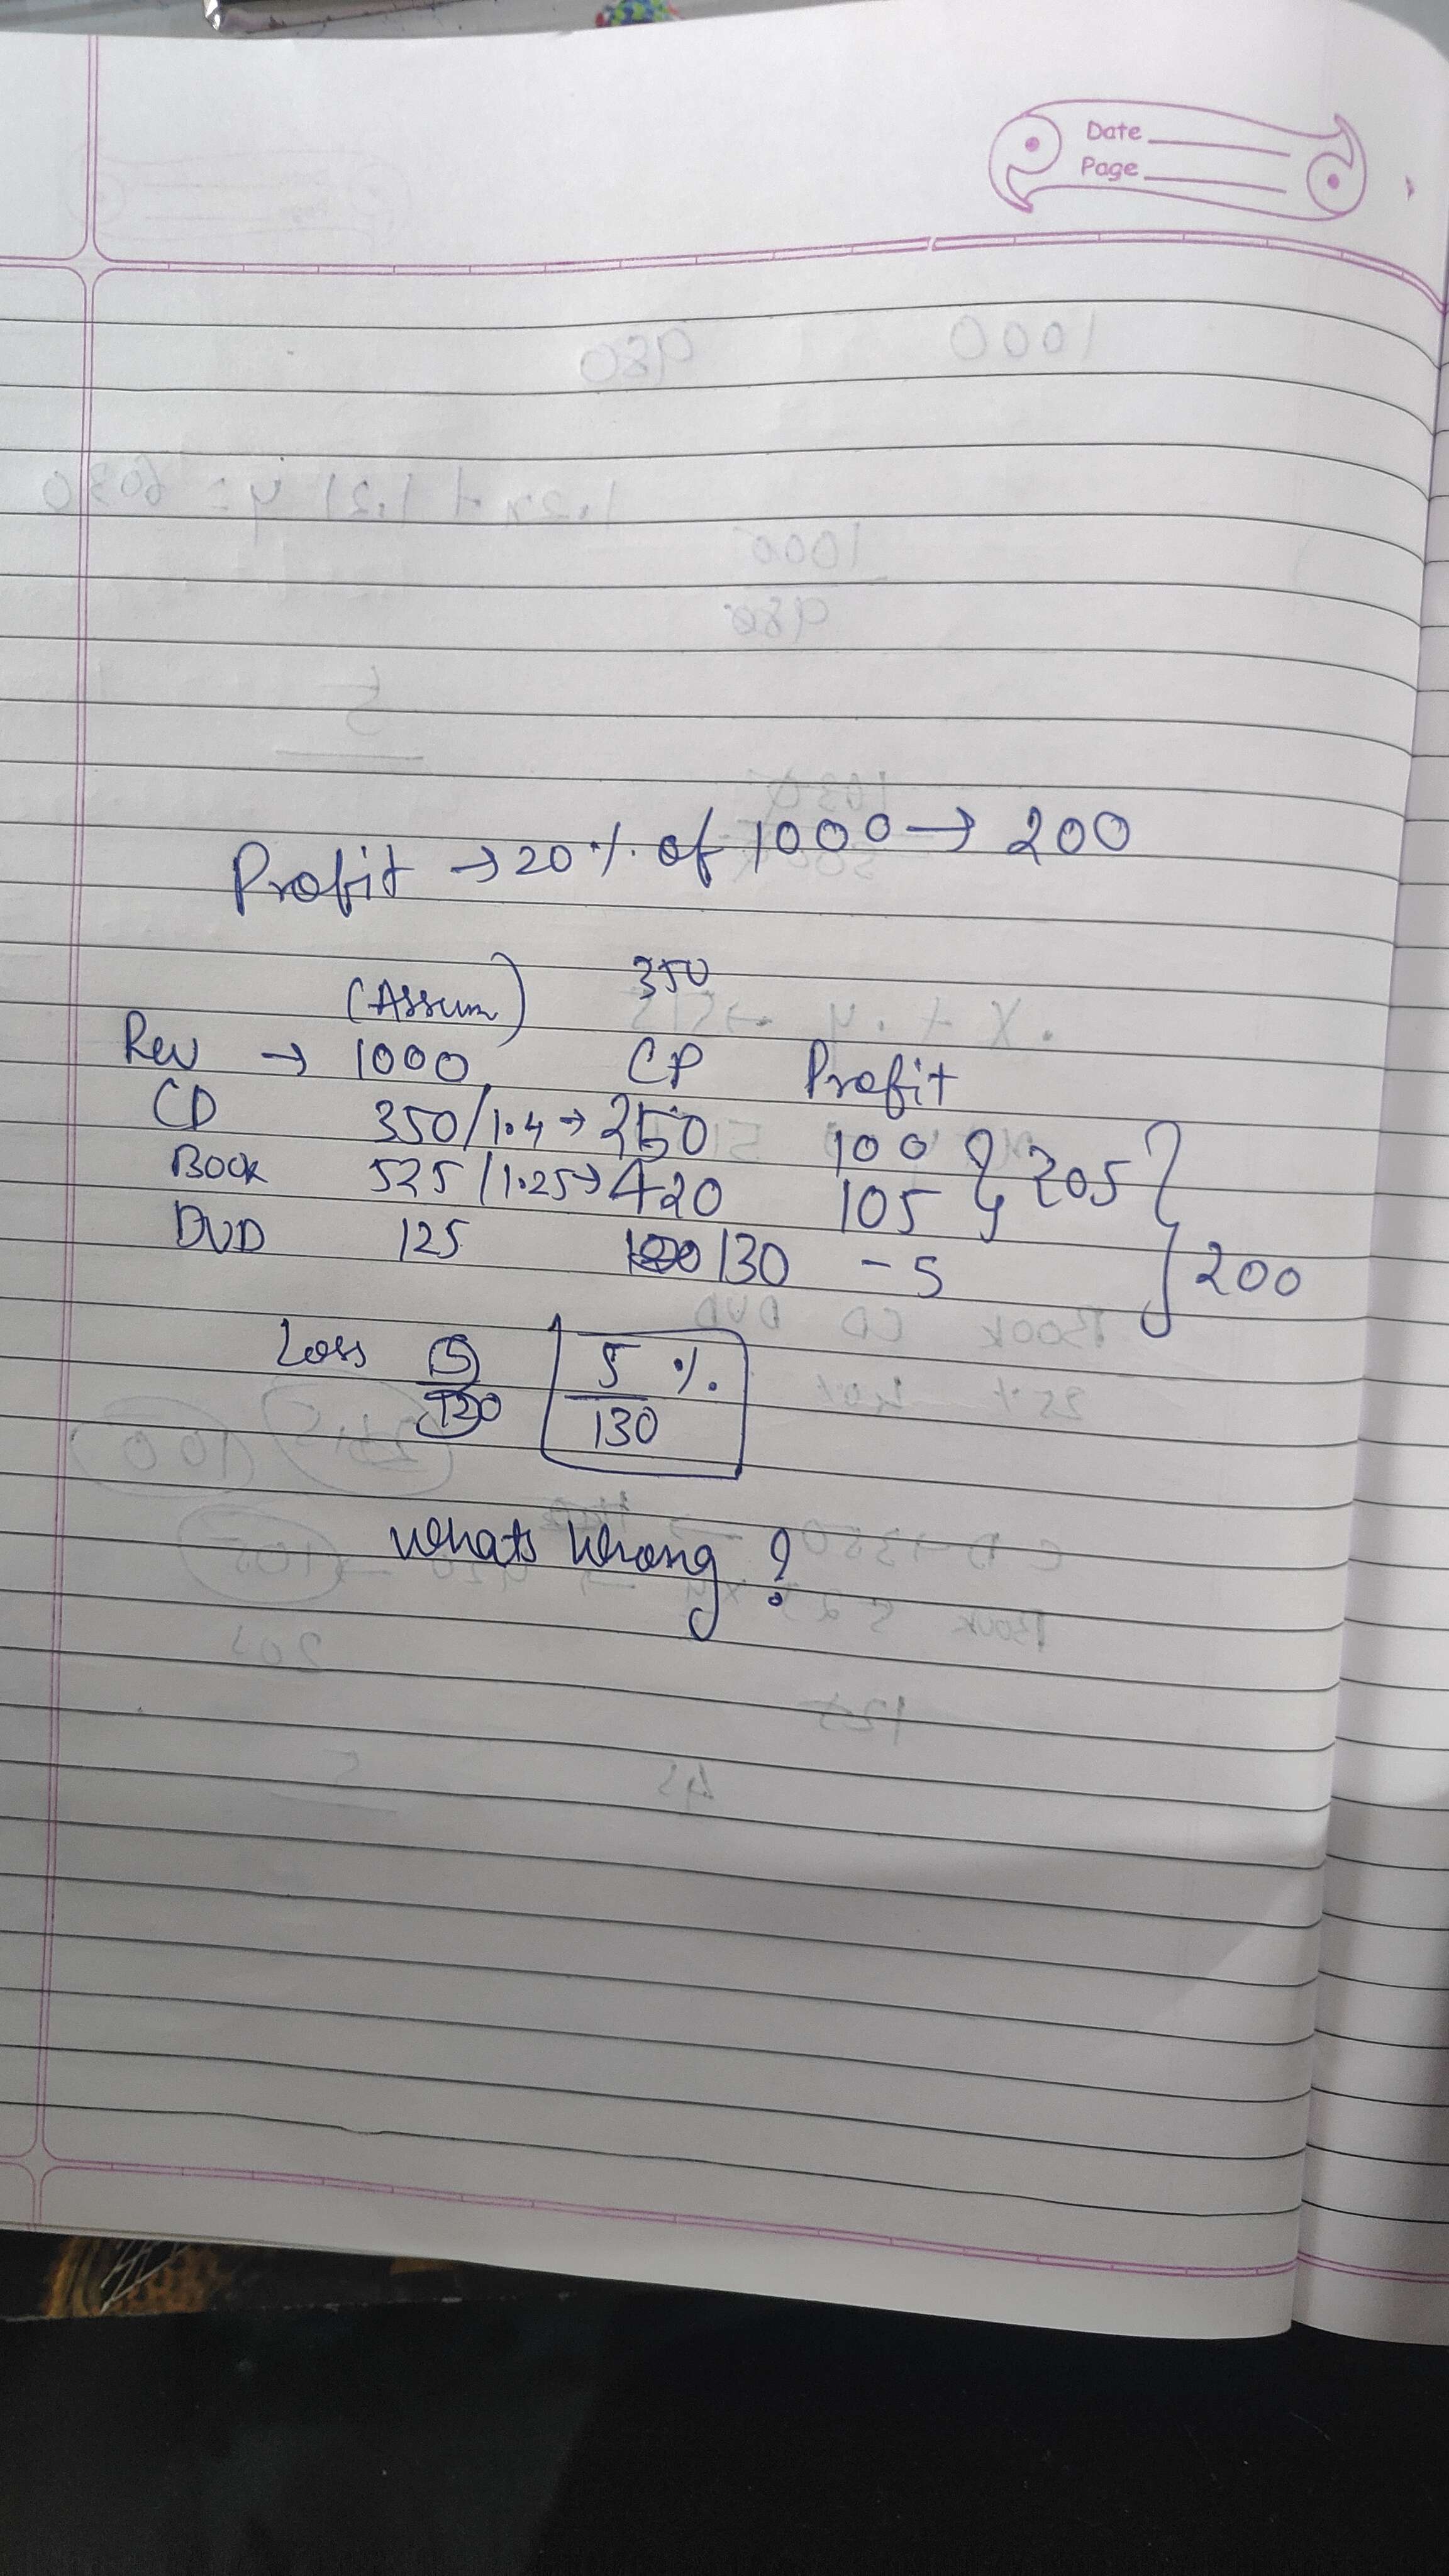 Date
Page
Profit → 20 % of 1000 → 200
(Assum) 350
Rev → 1000 CP Profit
CD 350/1.4 → 250 100
Book 525/1.25 → 420 105 205
DVD 125 130 -5 200
Loss 5/120 5/130 %
Whats Wrong ?